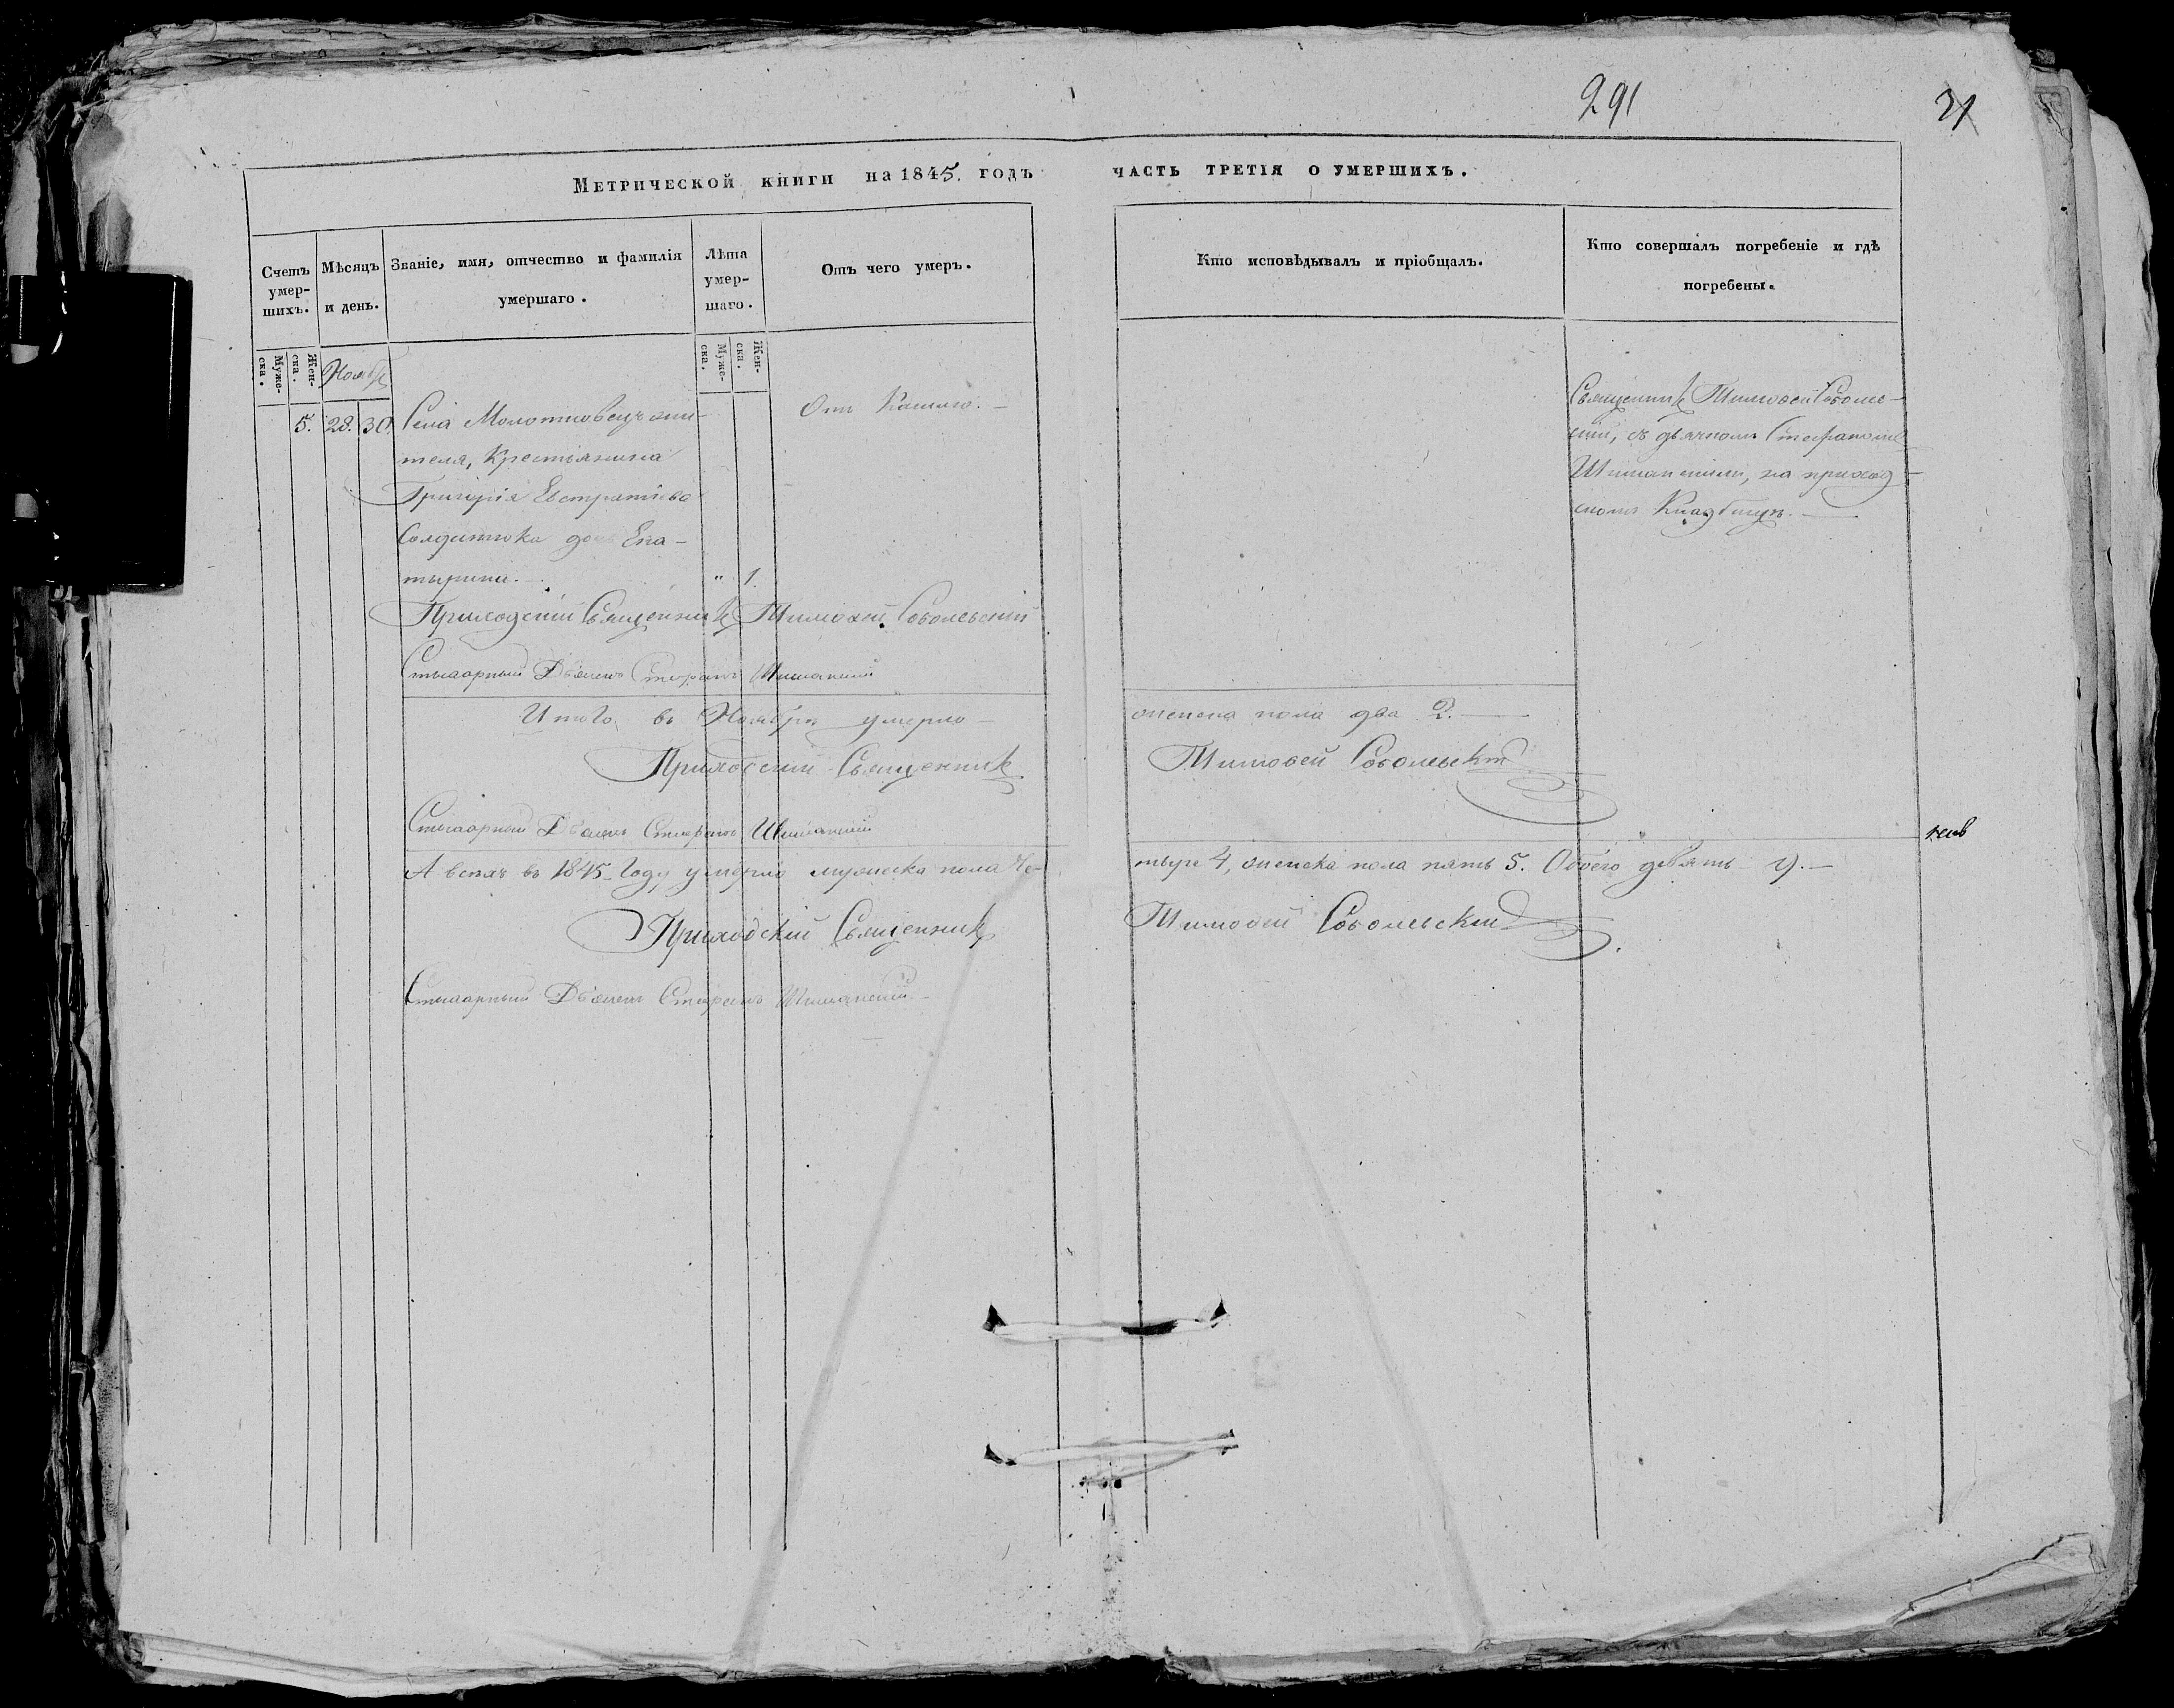 291
21
Метрической книги на 1845. годъ
часть третія о умершихъ.
Счетъ умер-
шихъ.
Мѣсяцъ
и день.
Званіе, имя, отчество и фамилія
умершаго.
Лѣта
умер-
шаго.
Отъ чего умеръ.
Кто исповѣдывалъ и пріобщалъ.
Кто совершалъ погребеніе и гдѣ
погребены.
Муже-
ска.
Жен-
ска.
Муже-
ска.
Жен-
ска.
Ноябрь
5. 28. 30.
Села Молотковецъ жи-
теля, Крестьянина
Григорія Евстратіева
дочь Ека-
тырина.
" 1.
Отъ Кашлю.
Священникъ Тимофей Соболев-
скій, съ дьячкомъ Стефаномъ
на приход-
скомъ Кладбищѣ.
Приходскій Священникъ Тимофей Соболевскій
Стихарный Дьячекъ Стефанъ
Итого, въ Ноябрѣ умерло
женска пола два 2.
Приходскій Священникъ
Тимофей Соболевскій
Стихарный Дьячекъ Стефанъ
А всѣхъ въ 1845. Году умерло мужеска пола че-
тыре 4, женска пола пять 5. Обоего девять 9.
Приходскій Священникъ
Тимофей Соболевскій
Стихарный Дьячекъ Стефанъ